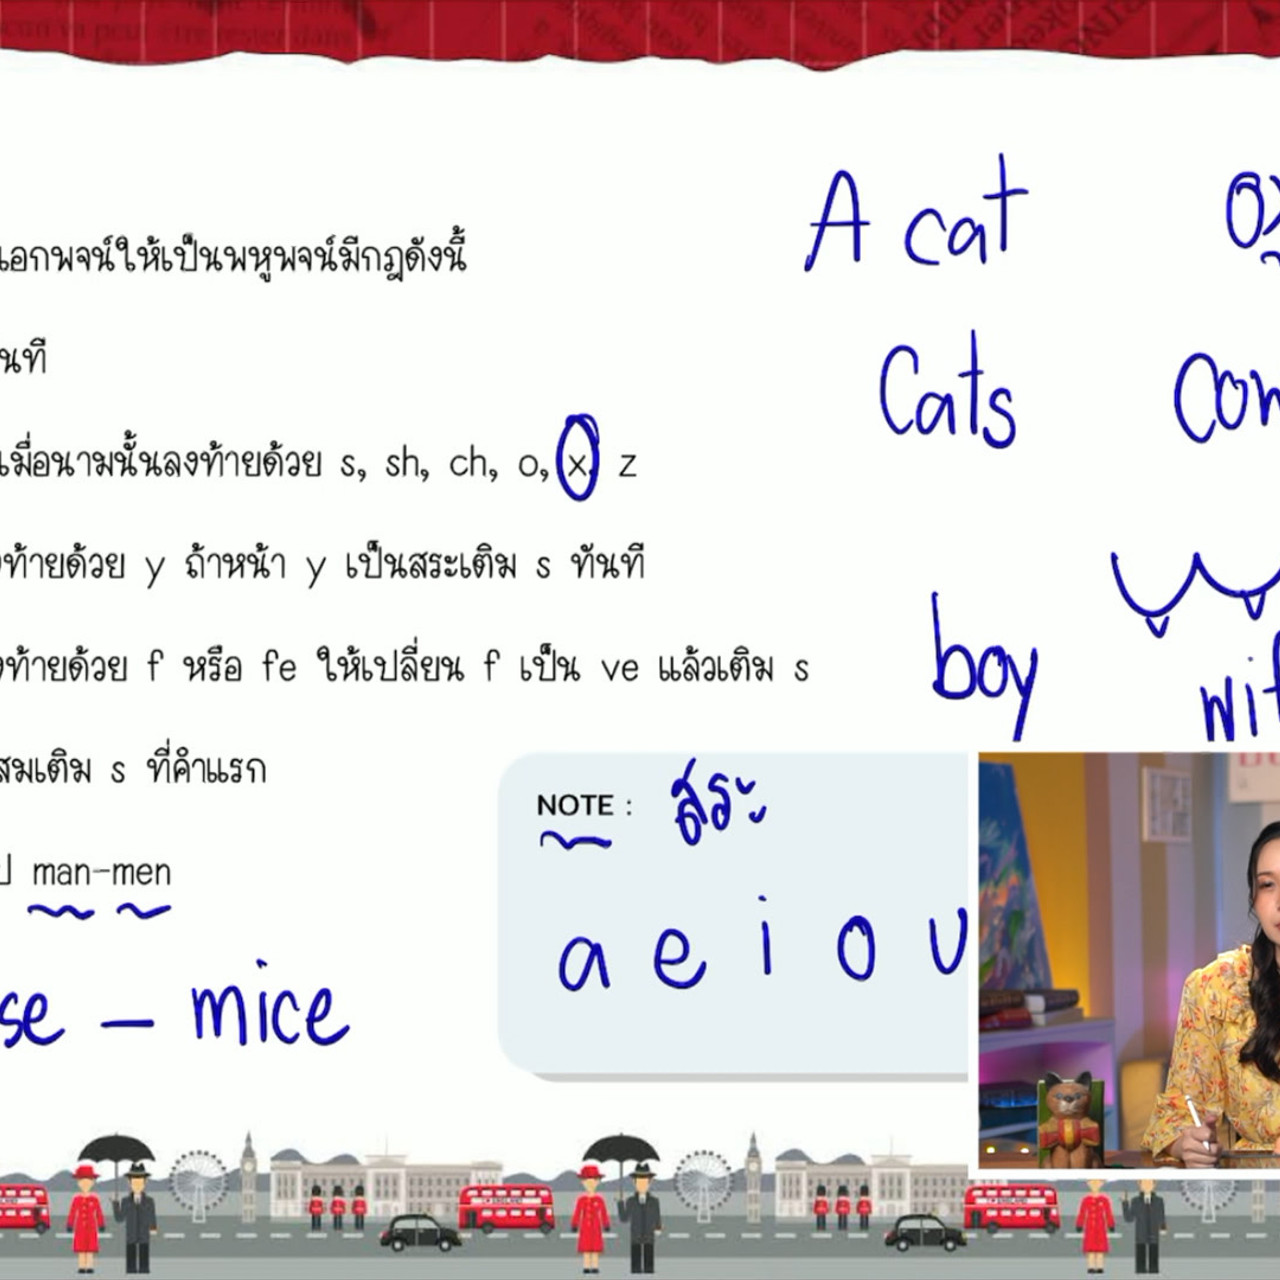 เอกพจน์ให้เป็นพหูพจน์มีกฎดังนี้
A cat
นที
Cats
เมื่อนามนั้นลงท้ายด้วย s, sh, ch, o, x, z
งท้ายด้วย y ถ้าหน้า y เป็นสระเติม s ทันที
boy
งท้ายด้วย f หรือ fe ให้เปลี่ยน f เป็น ve แล้วเติม s
wif
สมเติม s ที่คำแรก
NOTE : สระ
ป man-men
a e i o u
se – mice